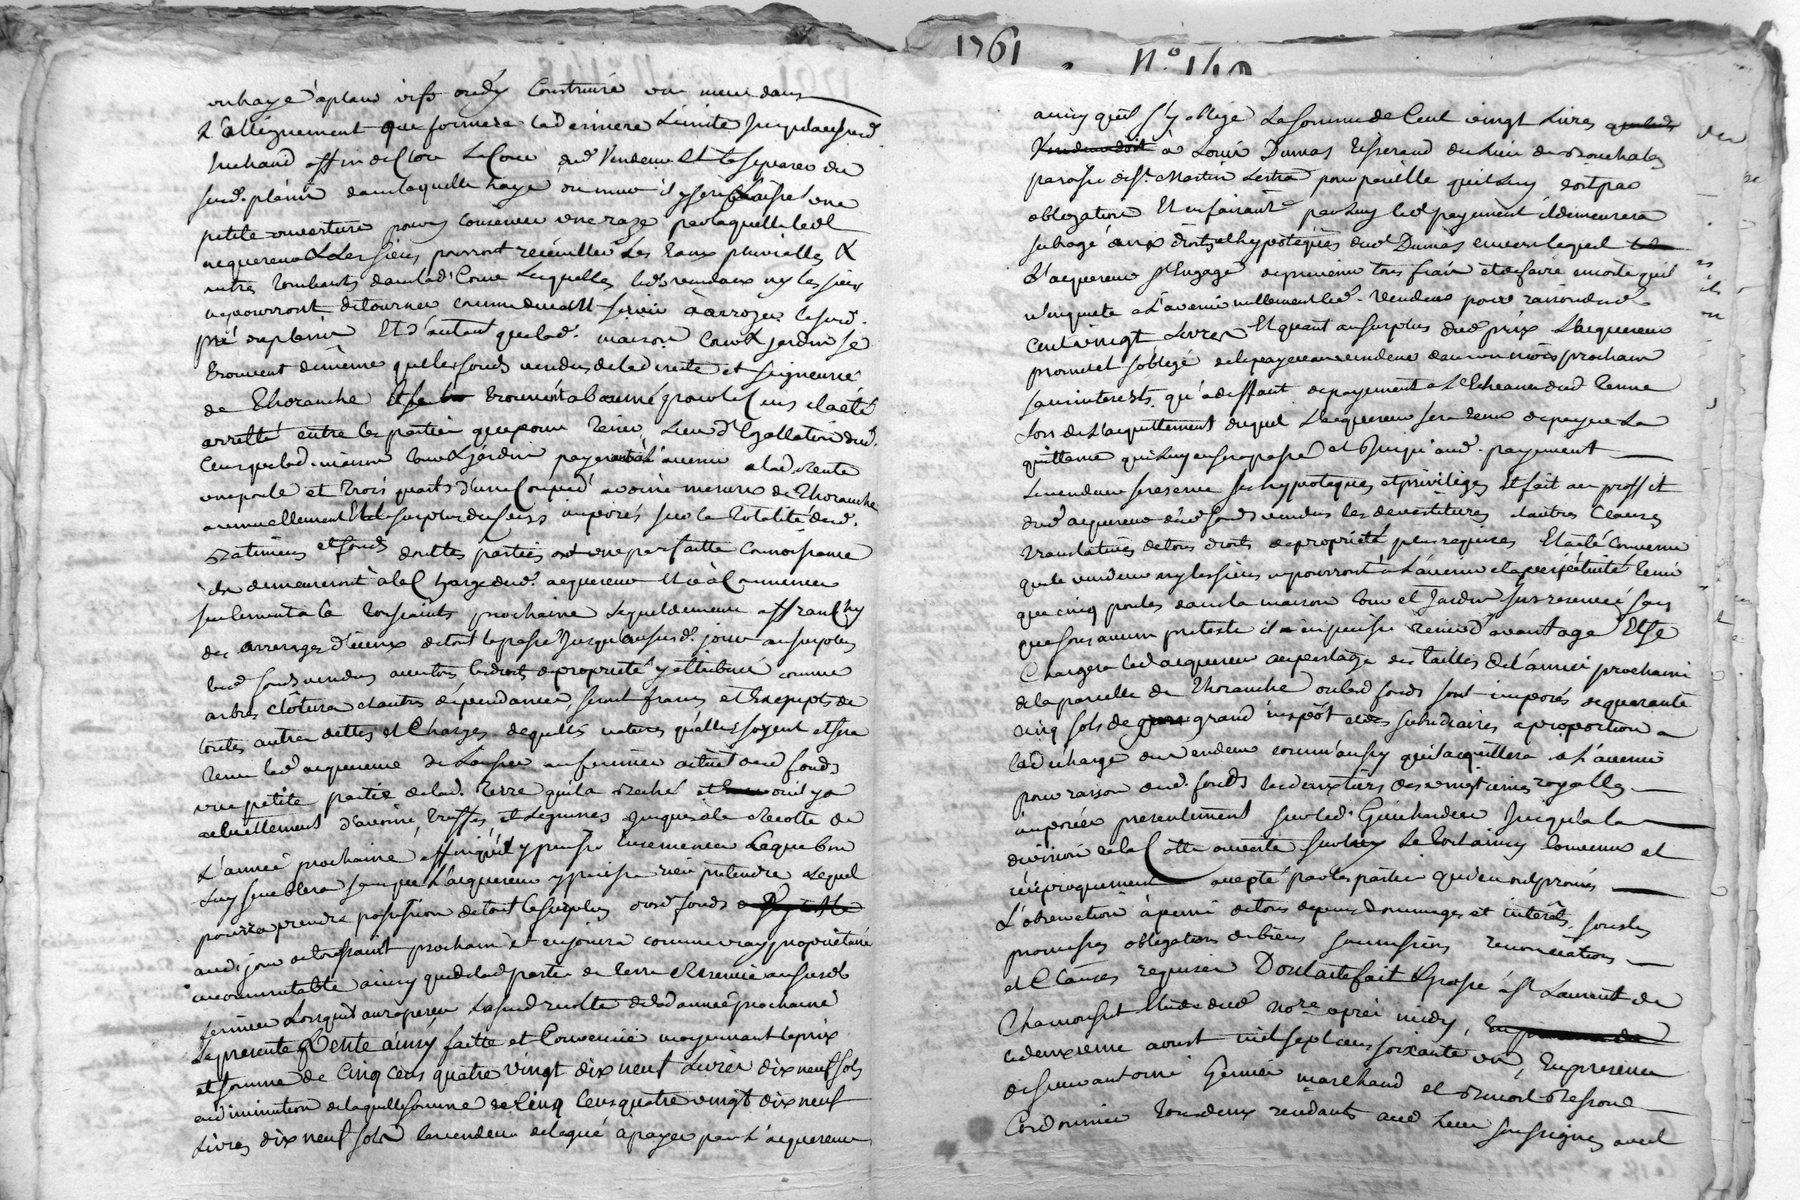 une haye a plans vifs ou d'y Construire un mur dans
L'allignement que formera lad. derniere Limite Jusqu'au susd.
affin de Clore La Cour dud. Vendeur Et la separer du
surd. plainé dans laquelle haye ou mur il y sera Laissé une
petite ouverture pour y conserver une raze par laquelle led.
acquereur & Les siens pourront recüeillir Les Eaux pluvialles &
autres tombants dans lad. Cour Lesquelles led. vendeur ny les siens
ne pourront détourner comme devant servir à arrozer le surd.
pré Et d'autant que lad. maison Cour & jardin se
trouvent de même que les fonds vendus de la directe et seigneurie
de Thoranche trouvent abonné pour le Cens il a été
arretté entre les parties que pour tenir Lieu d'Egallation dud.
Cens que lad. maison Cour & jardin payeront à L'avenir a lad. Rente
une poule et trois quarts d'une Coupe d'avoine mesure de Thoranche
annuellement Et le surplus du Cens imposés sur la totalité dud.
Batiments et fonds dont les parties ont une parfaitte connoissance
demeureront à la Charge dud. acquereur Et a Commencer
seulement a la toussaints prochaine Lequel demeure affranchy
des arrerages d'iceux de tout le passé Jusqu'au susd. jour au surplus
led. fonds vendus avec tous les droits de proprieté y attribués comme
arbres clôtures et autres dépendances, seront francs et Exempts de
toutes autres dettes et Charges de quelles natures qu'elles soyent et sera
tenu led. acquereur de Laisser au fermier actuel dud. fonds
une petite partie de lad. terre qu'il a Beché ou il y a
actuellement d'avoine, truffes et Legumes Jusques à la Recolte de
L'année prochaine affin qu'il y puisse ensemencer Ce que bon
Luy semblera sans que L'acquereur y puisse rien pretendre Lequel
pourra prendre possession de tout le surplus dud. fonds
aud. jour de toussaint prochain et en jouira comme vray proprietaire
incommutable ainsy que de lad. partie de terre Reservée au susd.
fermier Lorsqu'il aura perçu la susd. recolte de lad. année prochaine
La presente Vente ainsy faitte et Convenüe moyennant le prix
et somme de Cinq Cens quatre vingt dix neuf Livres dix neuf sols
en diminution de laquelle somme de Cinq Cens quatre vingt dix neuf
Livres dix neuf sols le vendeur a delegué a payer par L'acquereur
1761
N° 140
ainsy qu'il s'y oblige La somme de Cent vingt Livres
à Louis Dumas Tisserand du Lieu de
paroisse de St. Martin Lestra pour pareille qu'il luy doit par
obligation Et en faisant par luy led. payement il demeurera
subrogé aux droits et hypoteques dud. Dumas envers lequel
L'acquereur s'Engage de prevenir tous frais et de faire en sorte qu'il
n'inquiete a L'avenir nullement led. Vendeur pour raison desd.
Cent vingt Livres Et quant au surplus dud. prix L'acquereur
promet et s'oblige de le payer au vendeur dans un mois prochain
sans interests qu'à deffaut de payement a L'Echeance dud. terme
Lors de L'acquittement duquel L'acquereur sera tenu de payer La
quittance qui luy en sera passé et Jusqu'aud. payement
Le vendeur se reserve ses hypoteques et privileges Et fait au proffit
dud. acquereur desd. fonds vendus les devestitures et autres Clauses
translatives de tous droits de proprieté plus requises Et a été Convenu
que le vendeur ny les siens ne pourront à L'avenir et a perpétuité tenir
que cinq poules dans la maison Cour et Jardin sus reservé sans
que sous aucun pretexte il en puisse tenir d'avantage Et se
Chargera led. acquereur au peréage des tailles de L'année prochaine
de la parcelle de Thoranche ou lesd. fonds sont imposés de quarante
cinq sols de grand impôt et des subsidiaires a proportion a
la décharge du vendeur comm'aussy qu'il acquittera a L'avenir
pour raison dud. fonds les deux tiers des vingtiemes royalles
imposées presentement sur led. Guichardier Jusqu'a la
division de la Cotte ouverte sur luy Le tout ainsy Convenu et
réciproquement accepté par les parties qui en ont promis
L'observation à peine de tous depens dommages et intérêts, sous les
promesses obligations de biens soumissions renonciations
et Clauses requises Dont acte fait & passé à St. Laurent de
Chamousset Etude dud. nore. apres midy,
le deuxieme aoust mil sept cens soixante un, En presence
de sieur antoine Grenier marchand et Benoit
Cordonnier tous deux residants aud. Lieu soussignés avec